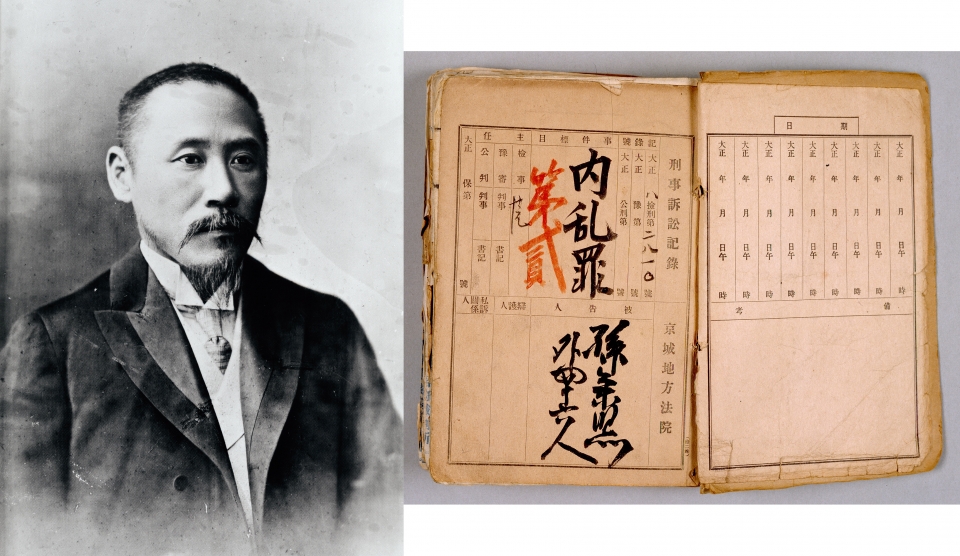 期日
大正 年 月 日午 時
大正 年 月 日午 時
大正 年 月 日午 時
大正 年 月 日午 時
大正 年 月 日午 時
大正 年 月 日午 時
大正 年 月 日午 時
大正 年 月 日午 時
備考
刑事訴訟記錄
京城地方法院
記錄號
大正八檢刑第二八一〇號
大正 豫第 號
大正 公刑第 號
事件標目
内乱罪
第貳
主任
檢事
豫審判事 書記
公判判事 書記
大正 保第 號
被告人
孫秉熙
外四十六人
辯護人
私訴關係人